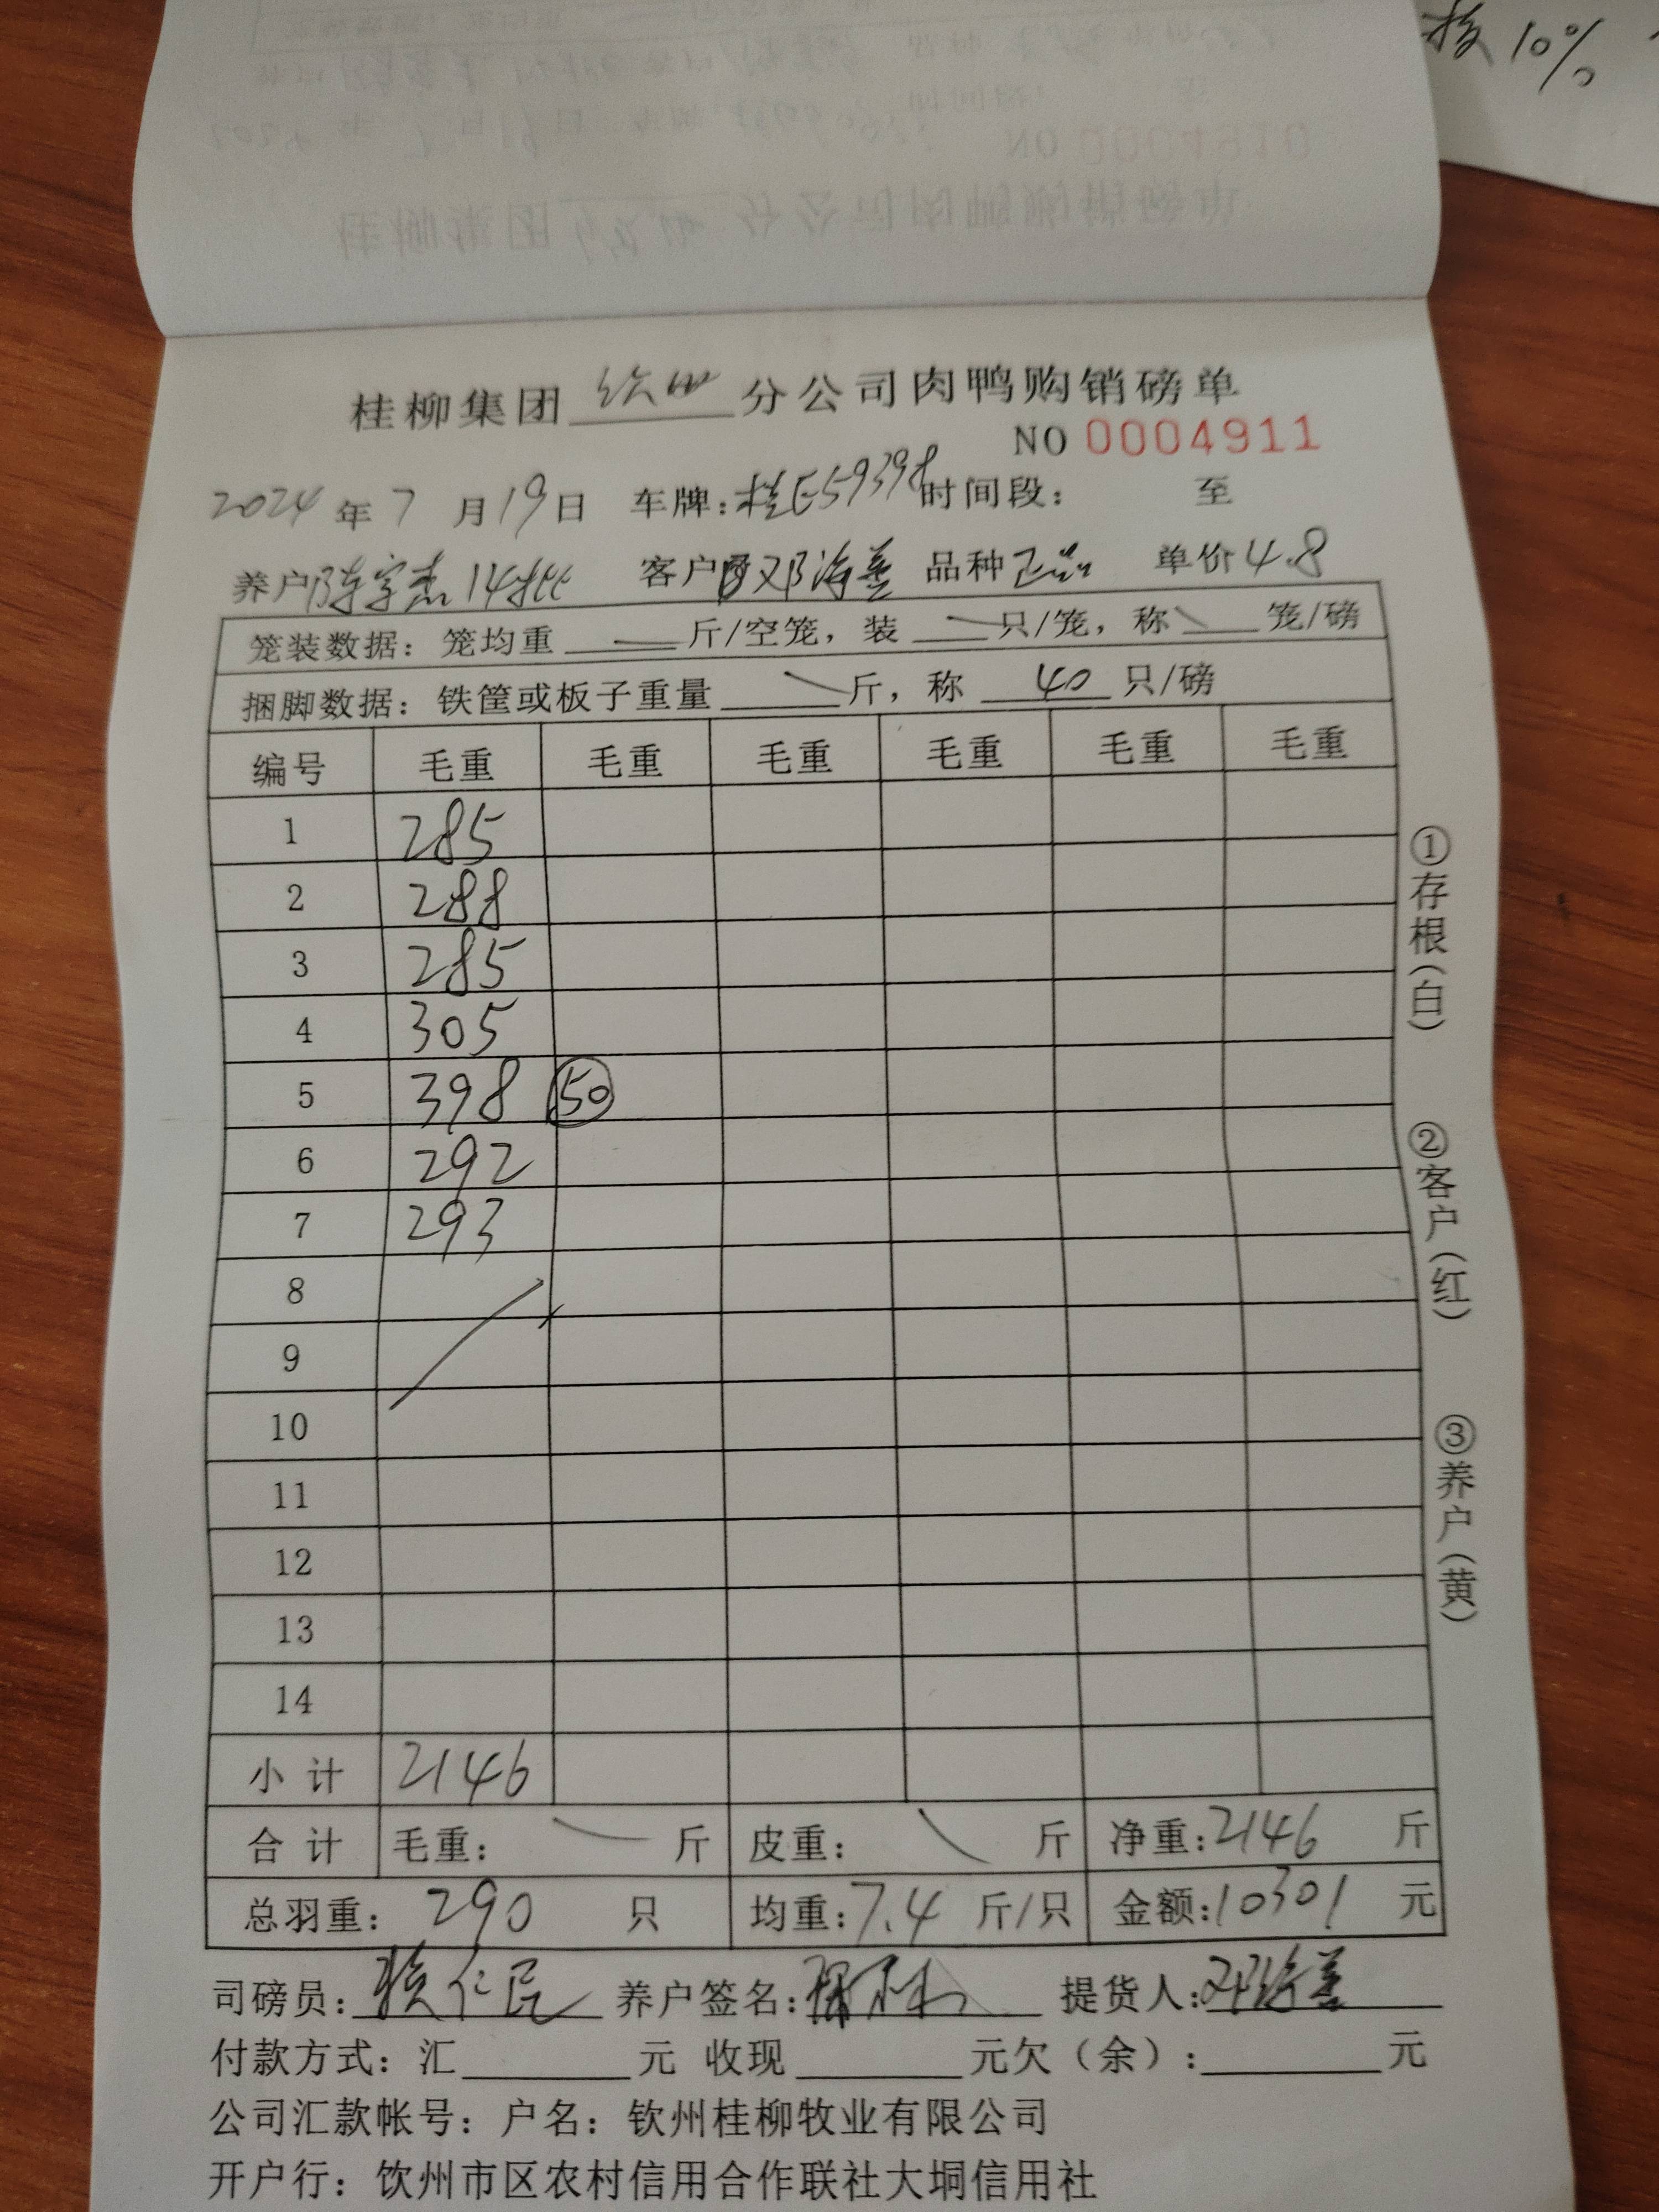 按10%
桂柳集团 钦州 分公司肉鸭购销磅单
NO 0004911
2024 年 7 月 19 日 车牌:桂E59398 时间段: 至
养户 陈宇杰14批 客户 邓海善 品种 正品 单价 4.8
笼装数据:笼均重 斤/空笼,装 只/笼,称 笼/磅
捆脚数据:铁筐或板子重量 斤,称 40 只/磅
编号 毛重 毛重 毛重 毛重 毛重 毛重
1 285
2 288
3 285
4 305
5 398 50
6 292
7 293
8
9
10
11
12
13
14
小计 2146
合计 毛重: 斤 皮重: 斤 净重:2146 斤
总羽重: 290 只 均重:7.4 斤/只 金额:10301 元
司磅员: 养户签名: 提货人:邓海善
付款方式:汇 元 收现 元欠(余): 元
公司汇款帐号:户名:钦州桂柳牧业有限公司
开户行:饮州市区农村信用合作联社大垌信用社
①存根(白)
②客户(红)
③养户(黄)